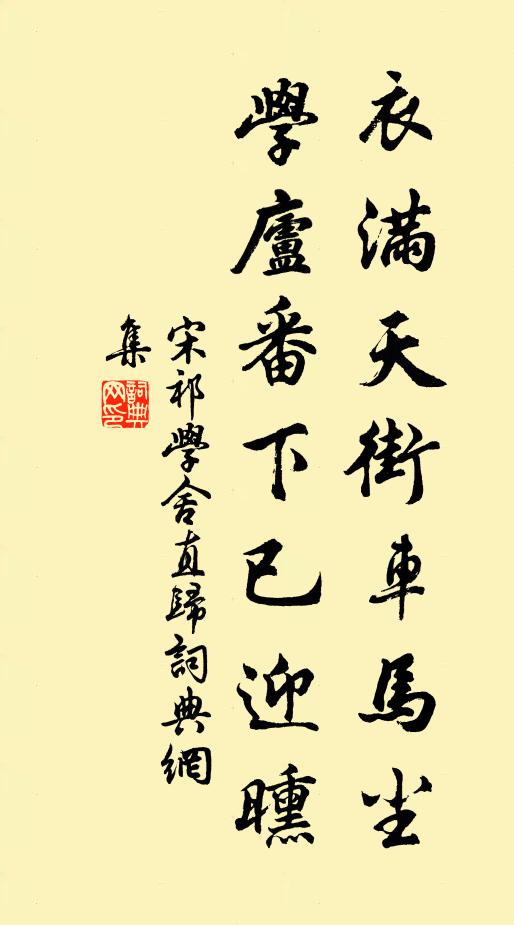 衣滿天街車馬尘
學廬番下已迎曛
宋祁學舍直歸詞典網
集
詞典
网印